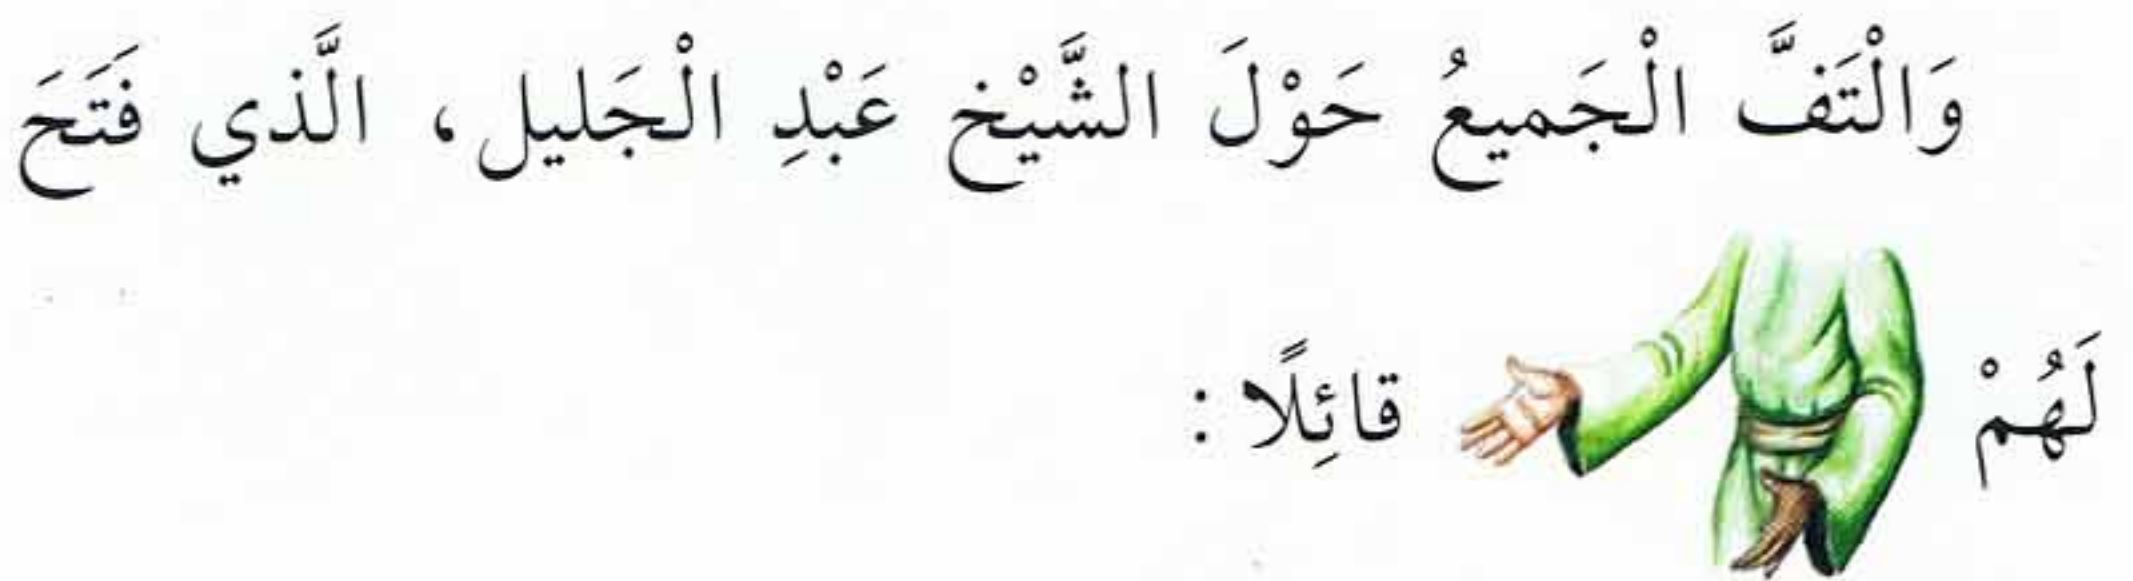 وَالْتَفَّ الْجَميعُ حَوْلَ الشَّيْخ عَبْدِ الْجَليل، الَّذي فَتَحَ
لَهُمْ قائِلًا :